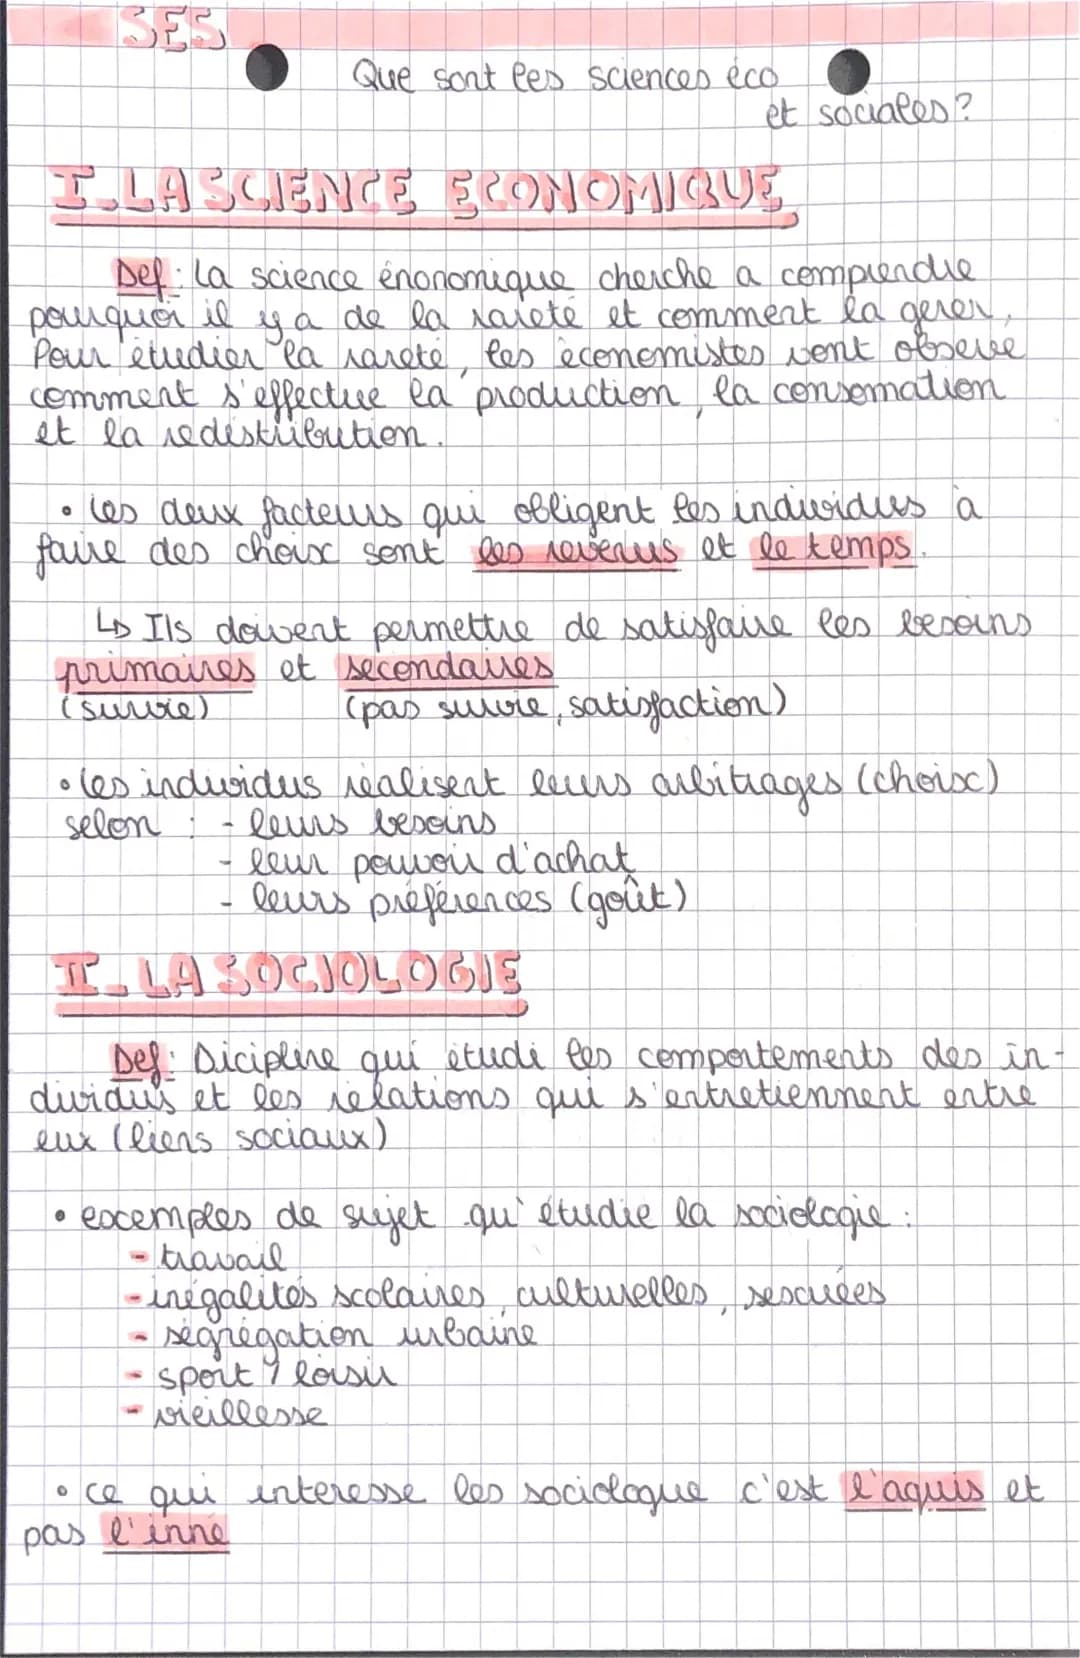 SES
Que sont les sciences éco
et sociales?
I_LA SCIENCE ECONOMIQUE
Def: La science énonomique cherche a comprendre
pourquoi il y a de la rareté et comment la gerer,
Pour étudier la rareté, les économistes vont observe
comment s'effectue la production, la consomation
et la redistribution.
• Les deux facteurs qui obligent les individus à
faire des choix sont les revenus et le temps.
↳ Ils doivent permettre de satisfaire les besoins
primaires et secondaires
(survie) (pas survie, satisfaction)
• Les individus réalisent leurs arbitrages (choix)
selon : - leurs besoins
- leur pouvoir d'achat
- leurs préférences (goût)
II_LA SOCIOLOGIE
Def: Dicipline qui étudi les comportements des in-
dividus et les relations qui s'entretiennent entre
eux (liens sociaux)
• exemples de sujet qu'étudie la sociologie :
- travail
- inégalités scolaires, culturelles, sexuées
- ségrégation urbaine
- sport / loisir
- vieillesse
• ce qui interesse les sociologue c'est l'aquis et
pas l'inné